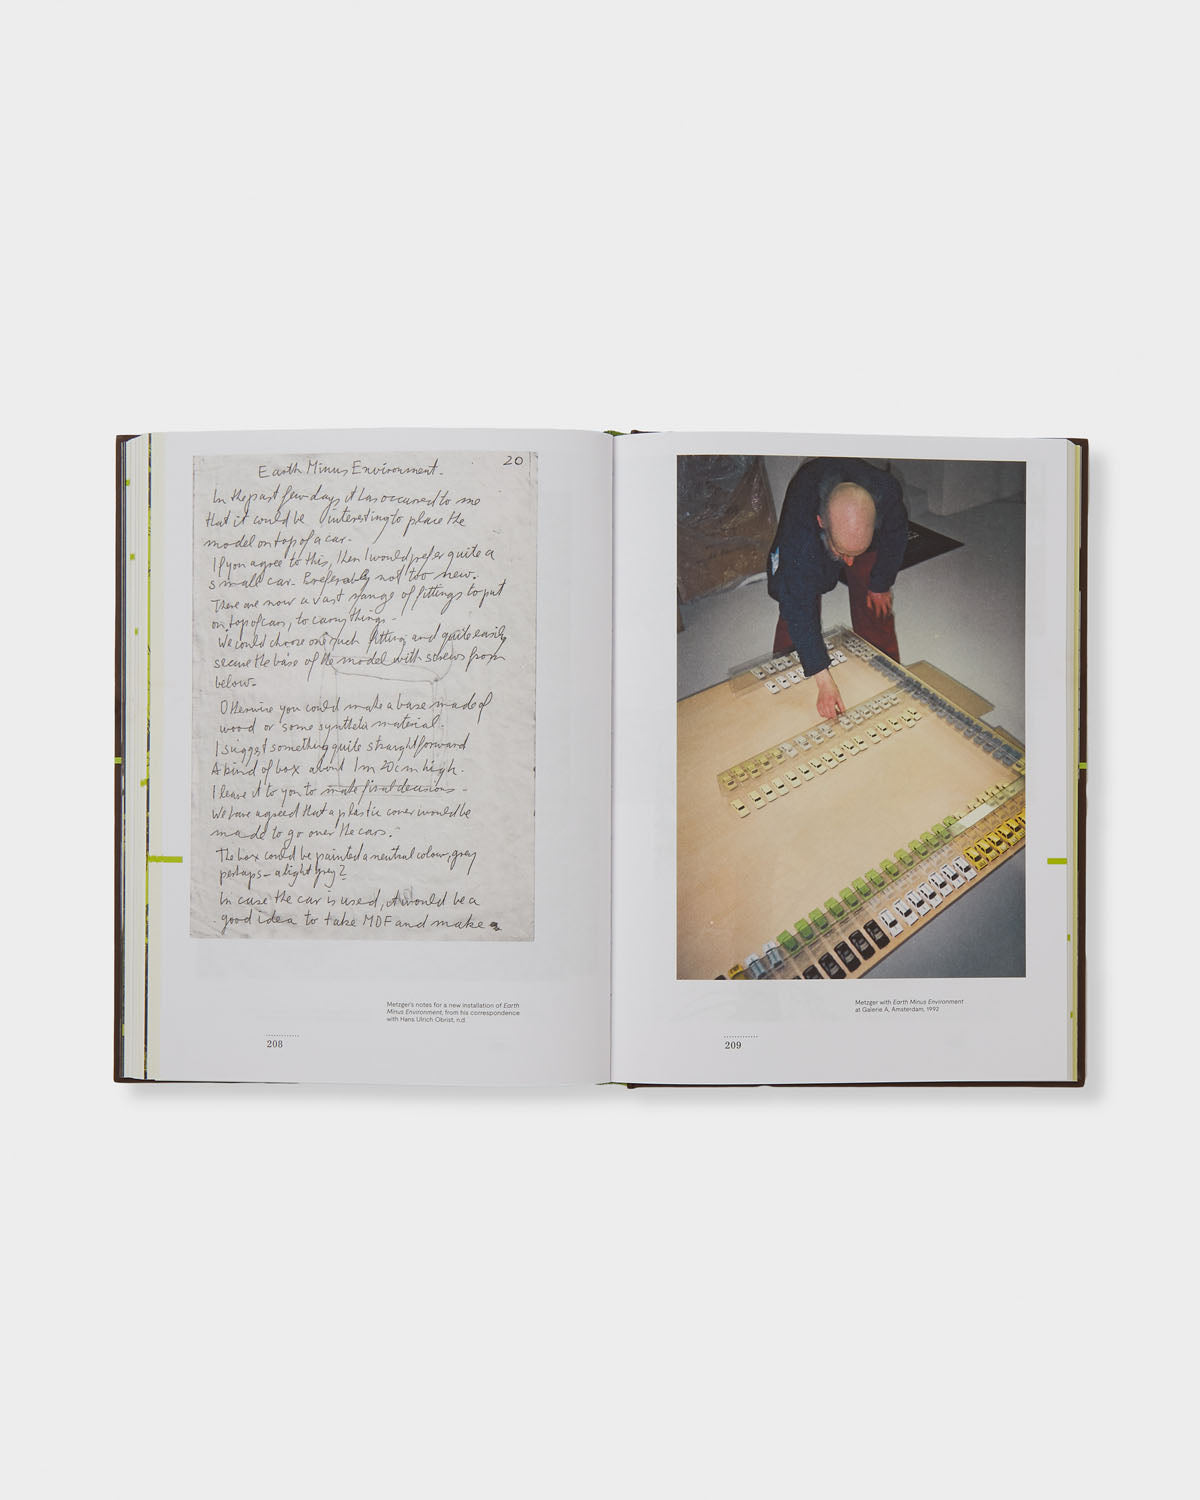 20
Earth Minus Environment.
In the past few days it has occured to me
that it could be interesting to place the
model on top of a car.
If you agree to this, then I would prefer quite a
small car. Preferably not too new.
There are now a vast range of fittings to put
on top of cars, to carry things.
We could choose one such fitting and quite easily
secure the base of the model with screws from
below.
Otherwise you could make a base made of
wood or some synthetic material.
I suggest something quite straightforward
A kind of box about 1m 20cm high.
I leave it to you to make final decisions -
We have agreed that a plastic cover would be
made to go over the cars.
The box could be painted a neutral colour, grey
perhaps - a light grey?
In case the car is used, it would be a
good idea to take MDF and make a
Metzger's notes for a new installation of Earth
Minus Environment, from his correspondence
with Hans Ulrich Obrist, n.d.
208
Metzger with Earth Minus Environment
at Galerie A, Amsterdam, 1992
209